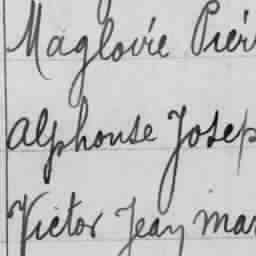 Magloire Pier
Alphonse Josep
Victor Jean mar